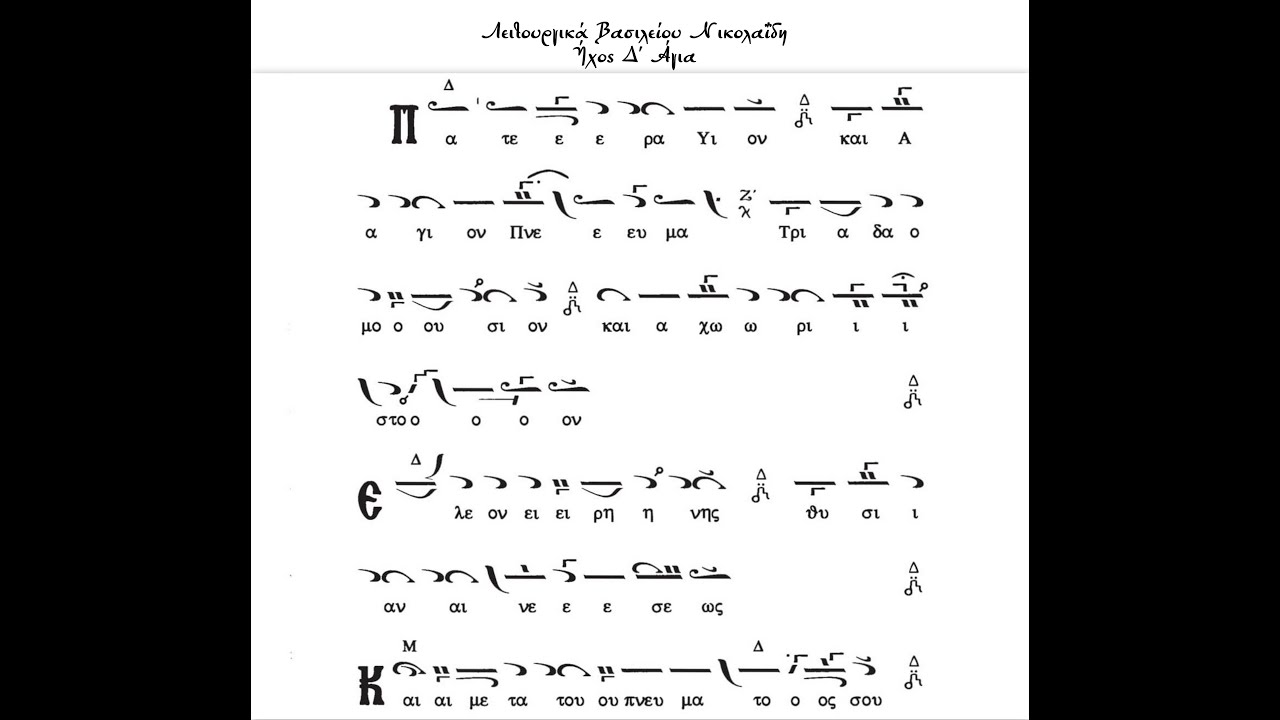 Λειτουργικά Βασιλείου Νικολαΐδη
ἦχος Δ΄ Ἅγια
Δ
Π α τε ε ε ρα Υι ον Δ και Α
α γι ον Πνε ε ευ μα Ζ΄ Τρι α δα ο
μο ο ου σι ον Δ και α χω ω ρι ι ι
στο ο ο ο ον Δ
Δ
Ε λε ον ει ει ρη η νης Δ θυ σι ι
αν αι νε ε ε σε ως Δ
Μ Δ
Κ αι αι με τα του ου πνευ μα το ο ος σου Δ